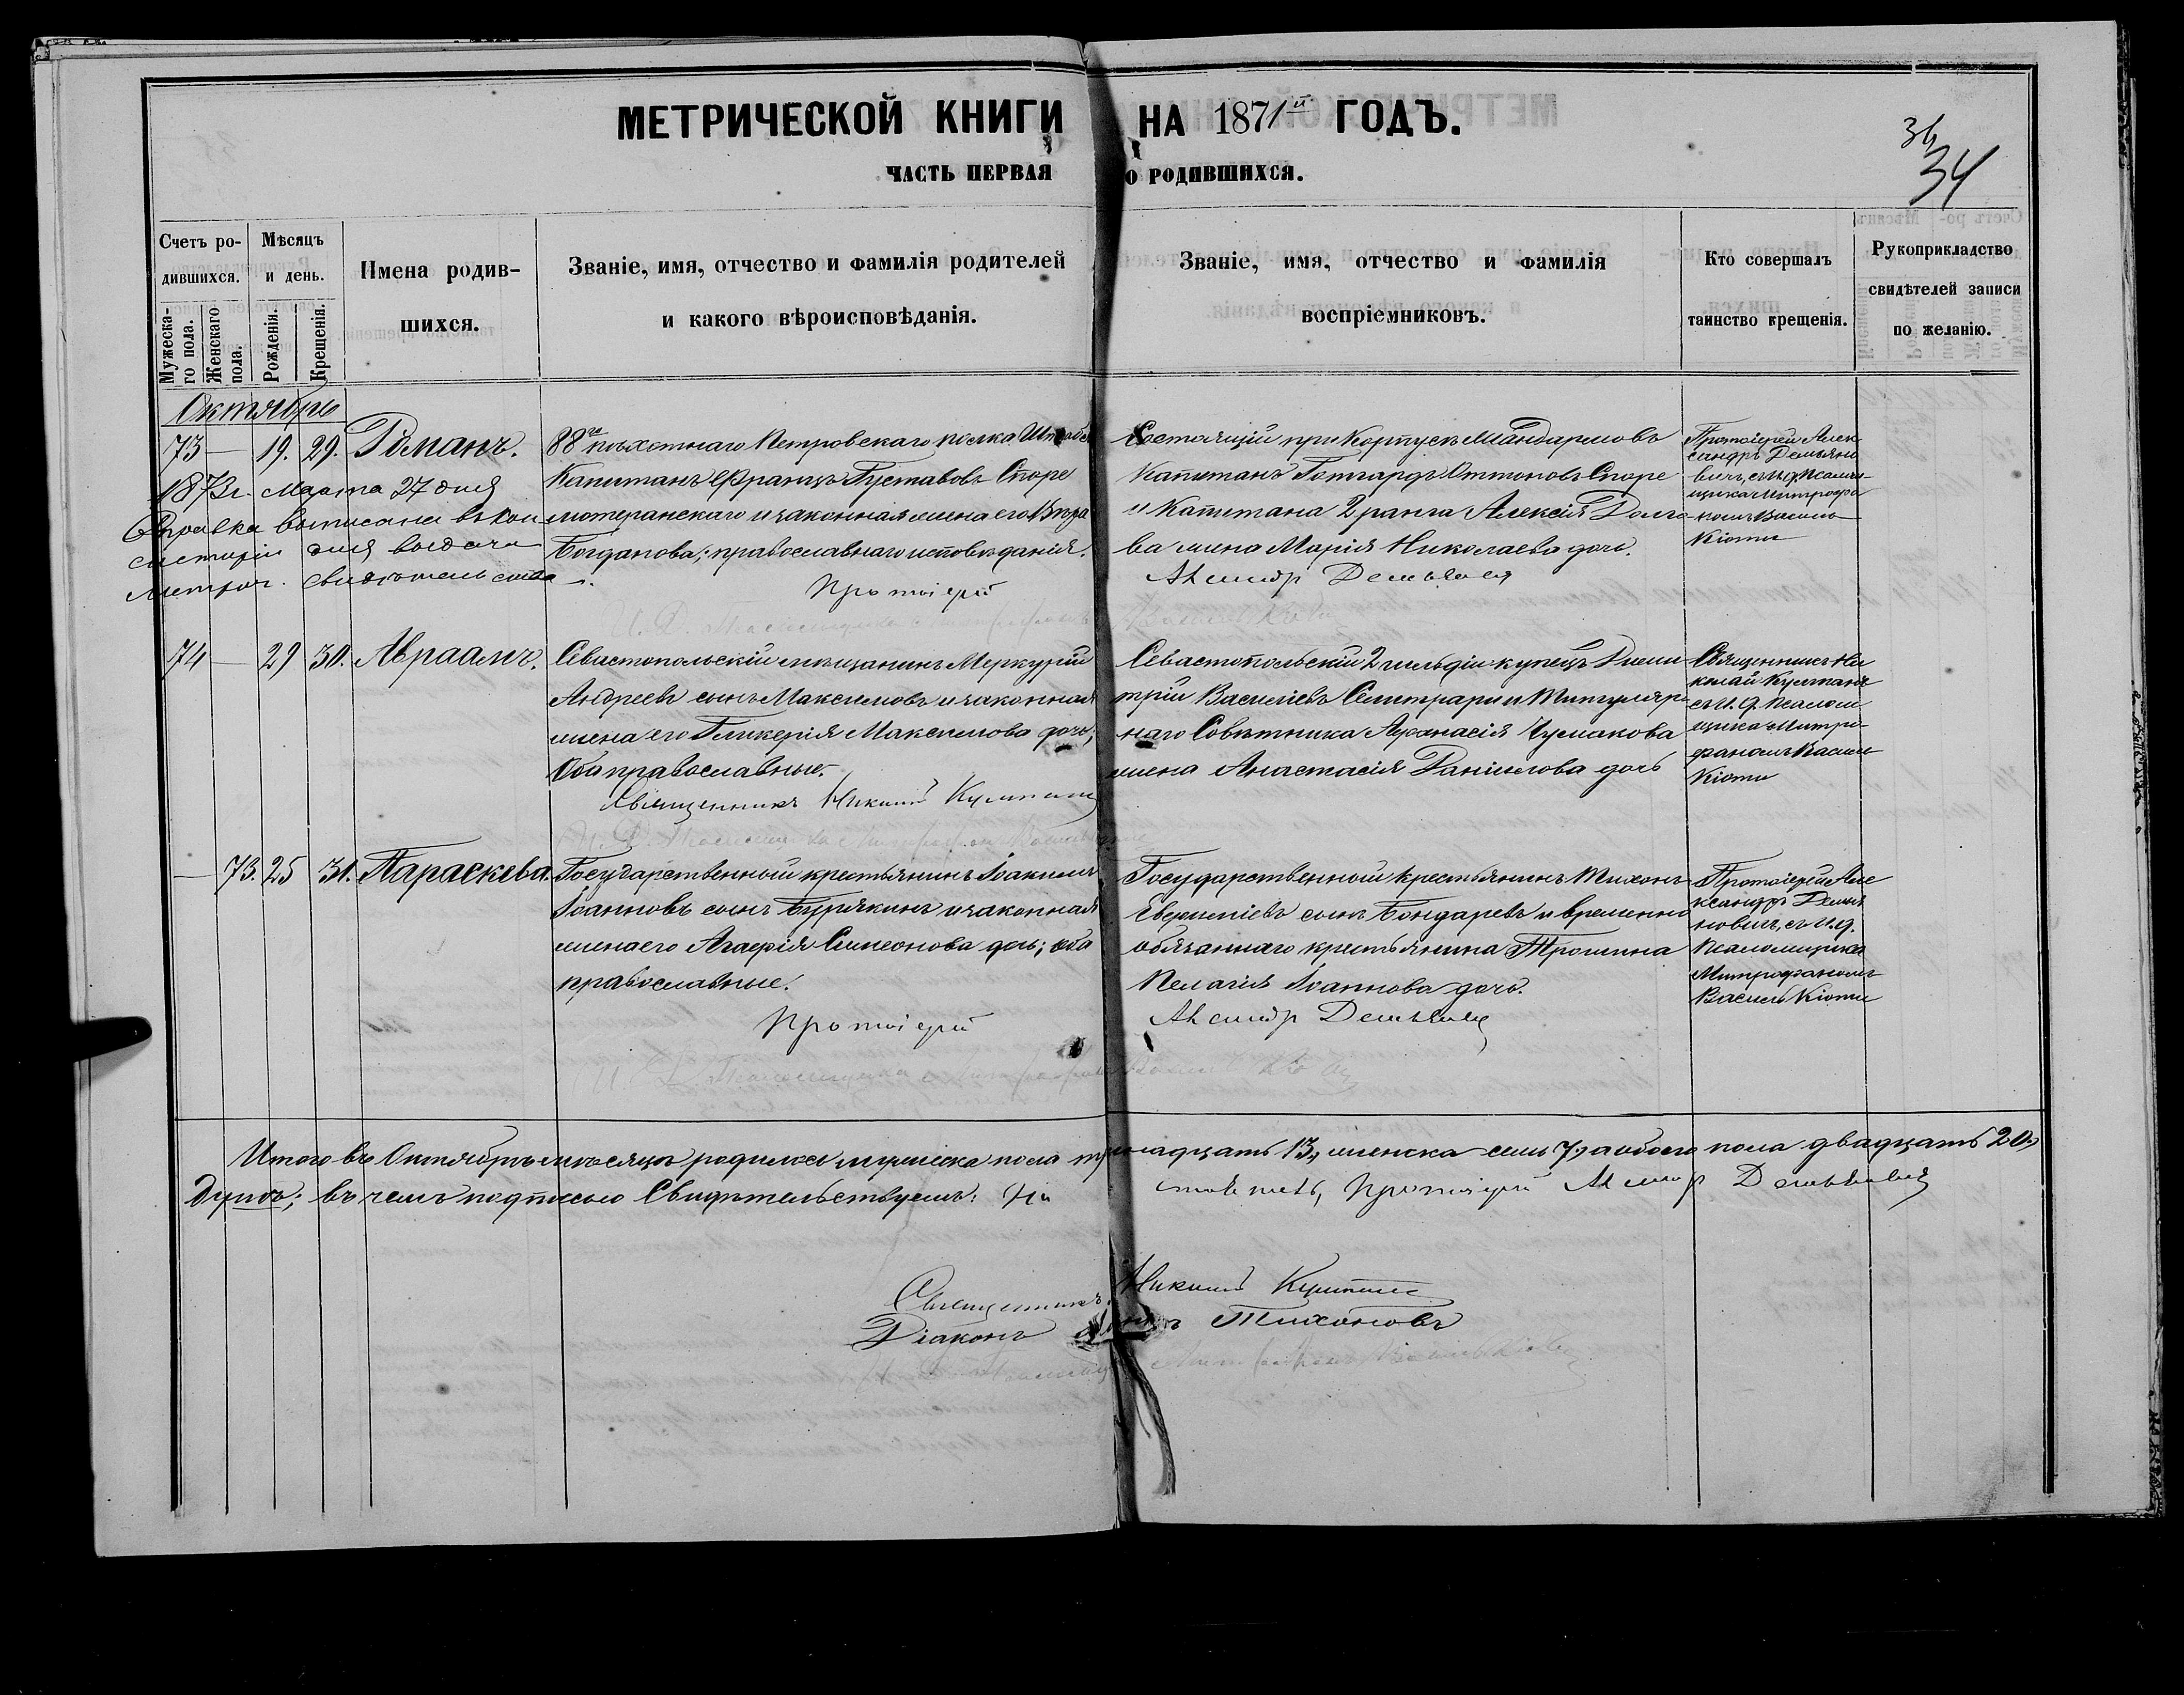 МЕТРИЧЕСКОЙ КНИГИ НА 1871й ГОДЪ.
36
34
ЧАСТЬ ПЕРВАЯ О РОДИВШИХСЯ.
Счетъ ро-
дившихся.
Мужеска-
го пола.
Женскаго
пола.
Мѣсяцъ
и день.
Рожденія.
Крещенія.
Имена родив-
шихся.
Званіе, имя, отчество и фамилія родителей
и какого вѣроисповѣданія.
Званіе, имя, отчество и фамилія
воспріемниковъ.
Кто совершалъ
таинство крещенія.
Рукоприкладство
свидѣтелей записи
по желанію.
Октябрь
73 — 19. 29. Романъ.
88го пѣхотнаго Петровскаго полка Штабсъ
Капитанъ Францъ Густавовъ Споре
лютеранскаго и законная жена его Вѣра
Богданова; православнаго исповѣданія.
Протоіерей
Состоящій при Корпусѣ Жандармовъ
Капитанъ Готгардъ Оттоновъ Споре
и Капитана 2 ранга Алексія Долго
ва жена Марія Николаева дочь.
Александръ Демьяновичъ
Протоіерей Алек-
сандръ Демьяно
вичъ, съ И. д. Псалом-
щика Митрофа
номъ Василь
Кіоти
1873 г. Марта 27 дня
Справка выписана въ Кон-
систорію для выдачи
метрич. свидѣтельства.
И. Д. Псаломщика Митрофанъ
74 — 29 30. Авраамъ.
Севастопольскій мѣщанинъ Меркурій
Андреевъ сынъ Максимовъ и законная
жена его Гликерія Максимова дочь;
Оба православные.
Священникъ Николай
Севастопольскій 2 гильдіи купецъ Дими
трій Василіевъ и Титуляр
наго Совѣтника Аѳанасія Чумакова
жена Анастасія Даніилова дочь
Священникъ Ни
колай
съ И. д. Псалом
щика Митро-
фаномъ Василь
Кіоти
И. Д. Псаломщика Митрофанъ
— 73. 25 31. Параскева.
Государственный крестьянинъ Іоакимъ
Іоанновъ сынъ Бурякинъ и законная
жена его Агафія Симеонова дочь; оба
православные.
Протоіерей
Государственный крестьянинъ Тихонъ
Евфиміевъ сынъ Бондаревъ и временно
обязаннаго крестьянина Трошина
Пелагія Іоаннова дочь.
Александръ Демьяновичъ
Протоіерей Але
ксандръ Демья
новичъ, съ И. д.
Псаломщика
Митрофаномъ
Василь Кіоти
И. Д. Псаломщика Митрофанъ
Итого въ Октябрѣ мѣсяцѣ родилось мужеска пола тринадцать 13, женска семь 7, а обоего пола двадцать 20,
душъ; въ чемъ подписью Свидѣтельствуемъ: Протоіерей Александръ Демьяновичъ
Священникъ Николай
Діаконъ Тихоновъ